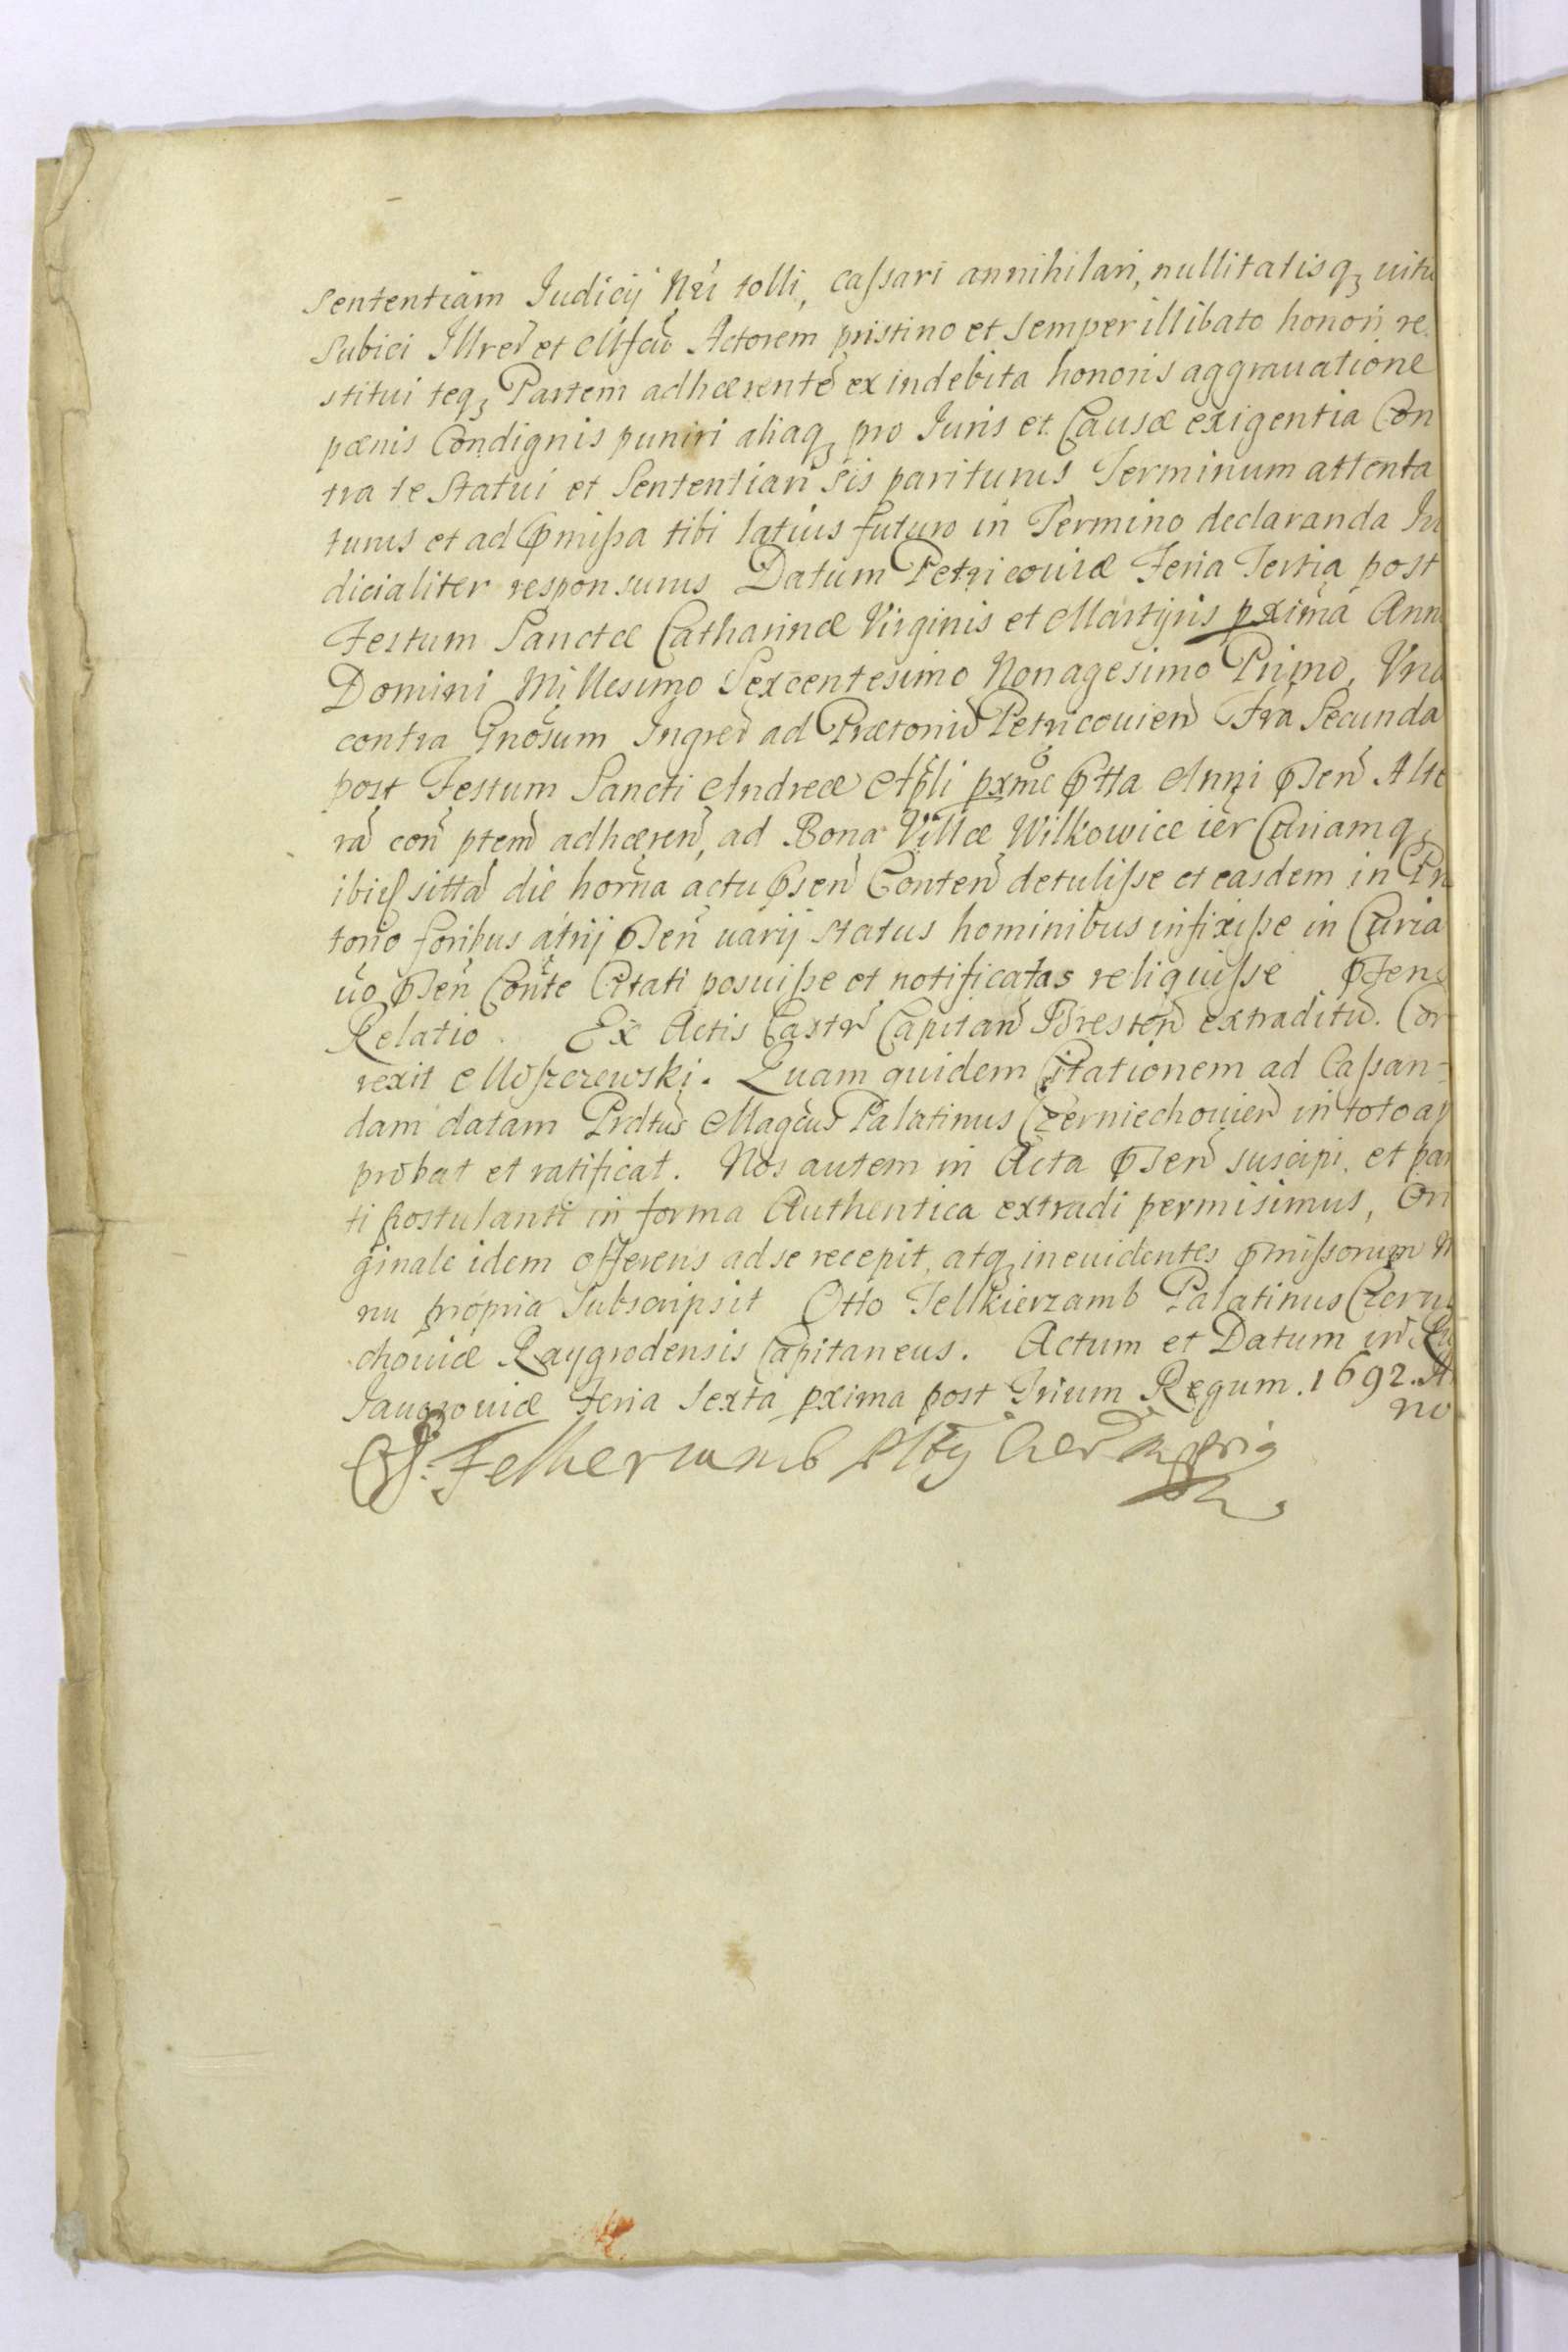 Sententiam Judicij Nri tolli, cassari annihilari, nullitatisq, uitu
Subici Illrem et Mfcum Actorem pristino et semper illibato honori re
stitui teq, Partem adhærentem ex indebita honoris aggrauatione
pænis Condignis puniri aliaq, pro Juris et Causæ exigentia Con
tra te Statui et Sententiari sis pariturus Terminum attenta
turus et ad præmissa tibi latius futuro in Termino declaranda Iu
dicialiter responsurus Datum Petricouiæ Feria Tertia post
Festum Sanctæ Catharinæ Virginis et Martyris pxima Ann
Domini Millesimo Sexcentesimo Nonagesimo Primo, Vna
contra Gnosum Ingres ad Prætoriu Petricouien Fra Secunda
post Festum Sancti Andreæ Apli pxme Anni Alte
ra con ptem adhæren, ad Bona Villæ Wilkowice ier Curiamq,
die actu Conten detulisse et easdem in Præ
torio foribus atrij uarij status hominibus infixisse in Curia
uo Citati posuisse et notificatas reliquisse
Relatio. Ex Actis Castr Capitan Bresten extraditu. Cor
rexit Moszczewski. Quam quidem Citationem ad Cassan-
dam datam Prdtus Magcus Palatinus Czerniechouien in toto ap
probat et ratificat. Nos autem in Acta suscipi et par
ti postulanti in forma Authentica extradi permisimus, Ori
ginale idem offerens ad se recepit, atq, in euidentes præmissorum
nu propria Subscripsit Otto Felkierzamb Palatinus Czernie
chouiæ Raygrodensis Capitaneus. Actum et Datum in
Jauorouiæ Feria Sexta pxima post Trium Regum. 1692. A
no
O F. Felkerzamb